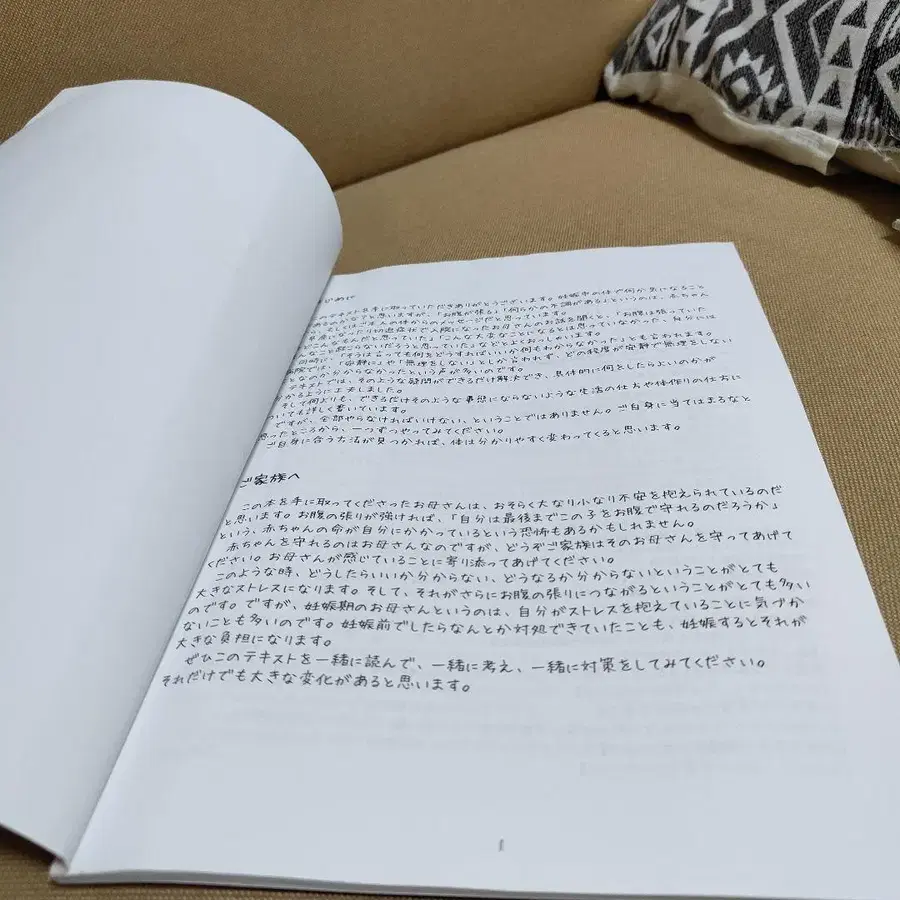 めに
のテキストを手に取っていただきありがとうございます。妊娠中の体で何か気になること
あるのかな?と思いますが、「お腹が張る」「何らかの不調がある」というのは、赤ちゃん
、もしくはご本人の体からのメッセージだと思っています。
早産になったり切迫症状で入院になったお母さんのお話を聞くと、「お腹は張っていた
こんなもんだと思っていた」「こんな大変なことになるとは思っていなかった、自分には
んなこと起こらないだろうと思っていた」などとよくおっしゃいます。
同時に、「そうは言っても何をどうすればいいか何もわからなかった」とも言われます。
院では、「安静に」や「無理をしない」としか言われず、どの程度が安静で無理をしない
となのか分からなかったという声が多いです。
テキストでは、そのような疑問ができるだけ解決でき、具体的に何をしたらよいのかが
かるように工夫しました。
そして何よりも、できるだけそのような事態にならないような生活の仕方や体作りの仕方に
いても詳しく書いています。
ですが、全部やらなければいけない、ということではありません。ご自身に当てはまるなと
思ったところから、一つずつやってみてください。
ご自身に合う方法が見つかれば、体は分かりやすく変わってくると思います。
ご家族へ
この本を手に取ってくださったお母さんは、おそらく大なり小なり不安を抱えられているのだ
と思います。お腹の張りが強ければ、「自分は最後までこの子をお腹で守れるのだろうか」
という、赤ちゃんの命が自分にかかっているという恐怖もあるかもしれません。
赤ちゃんを守れるのはお母さんなのですが、どうぞご家族はそのお母さんを守ってあげて
ください。お母さんが感じていることに寄り添ってあげてください。
このような時、どうしたらいいか分からない、どうなるか分からないということがとても
大きなストレスになります。そして、それがさらにお腹の張りにつながるということがとても多い
のです。ですが、妊娠期のお母さんというのは、自分がストレスを抱えていることに気づか
ないことも多いのです。妊娠前でしたらなんとか対処できていたことも、妊娠するとそれが
大きな負担になります。
ぜひこのテキストを一緒に読んで、一緒に考え、一緒に対策をしてみてください。
それだけでも大きな変化があると思います。
1